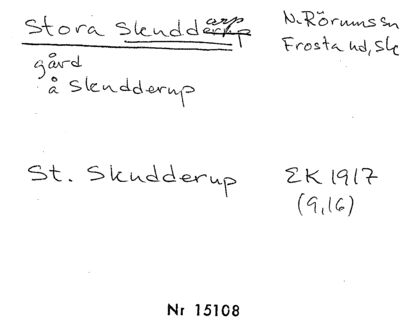 Stora Skuddarp
N. Rörums sn
Frosta hd, Sk
gård
å Skudderup
St. Skudderup
EK 1917
(9,16)
Nr 15108